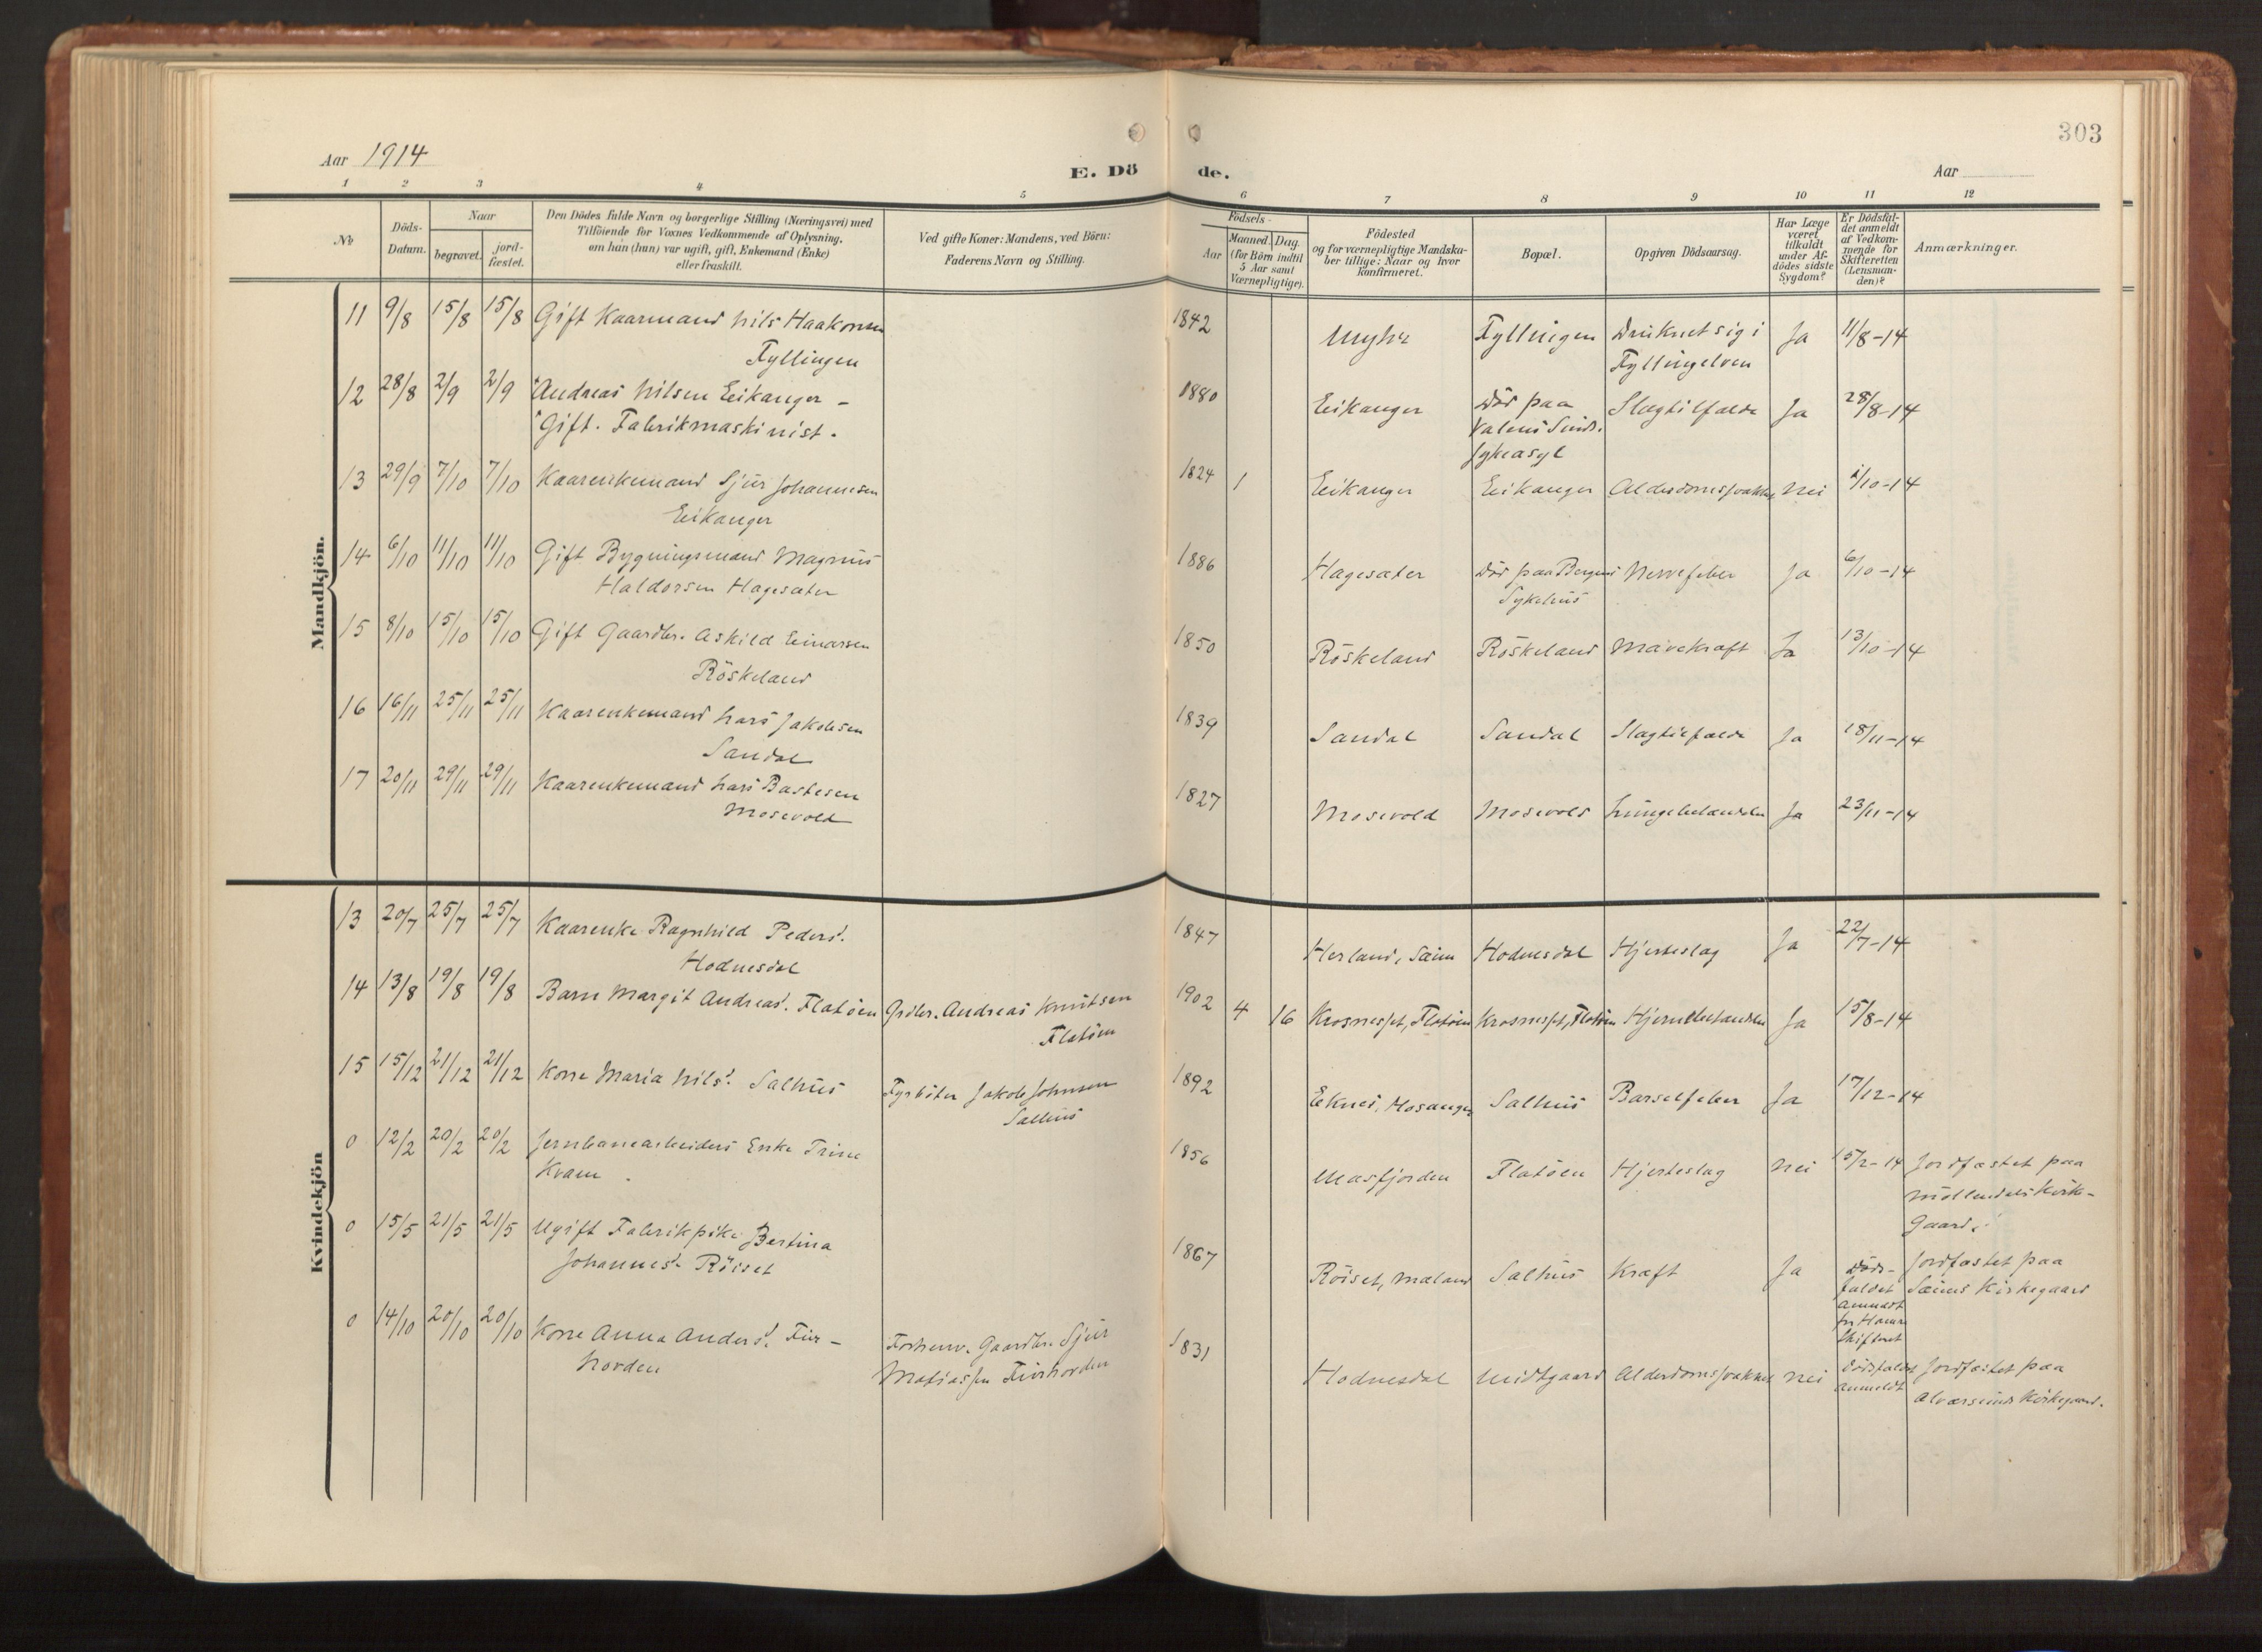 303
Aar 1914
E. Döde.
Aar
1 2 3 4 5 6 7 8 9 10 11 12
No
Döds-Datum.
Naar
begravet.
jord-fæstet.
Den Dödes fulde Navn og borgerlige Stilling (Næringsvei) med
Tilföiende for Voxnes Vedkommende af Oplysning,
om han (hun) var ugift, gift, Enkemand (Enke)
eller fraskilt.
Ved gifte Koner: Mandens, ved Börn:
Faderens Navn og Stilling.
Födsels-
Aar
Maaned. Dag.
(for Börn indtil
5 Aar samt
Værnepligtige).
Födested
og for værnepligtige Mandska-
ber tillige: Naar og hvor
konfirmeret.
Bopæl.
Opgiven Dödsaarsag.
Har Læge
været
tilkaldt
under Af-
dödes sidste
Sygdom?
Er Dödsfal-
det anmeldt
af Vedkom-
mende for
Skifteretten
(Lensman-
den)?
Anmærkninger.
Mandkjön.
11 9/8 15/8 15/8 Gift Kaarmand Nils Haakonsen 1842 Myhr Fyllingen Druknet sig i Ja 11/8-14
Fyllingen Fyllingelven
12 28/8 2/9 2/9 Andreas Nilsen Eikanger - 1880 Eikanger Död paa Slagtilfælde Ja 28/8-14
Gift. Fabrikmaskinist. Valens Sinds.
sykeasyl
13 29/9 7/10 7/10 Kaarenkemand Sjur Johannesen 1824 1 Eikanger Eikanger Alderdomssvakhet Nei 1/10-14
Eikanger
14 6/10 11/10 11/10 Gift Bygningsmand Magnus 1886 Hagesæter Död paa Bergens Nervefeber Ja 6/10-14
Haldorsen Hagesæter Sykehus
15 8/10 15/10 15/10 Gift Gaardbr. Askild Einarsen 1850 Röskeland Röskeland Mavekræft Ja 13/10-14
Röskeland
16 16/11 25/11 25/11 Kaarenkemand Lars Jakobsen 1839 Sandal Sandal Slagtilfælde Ja 18/11-14
Sandal
17 20/11 29/11 29/11 Kaarenkemand Lars Bastesen 1827 Mosevold Mosevold Lungebetændelse Ja 23/11-14
Mosevold
Kvindekjön
13 20/7 25/7 25/7 Kaarenke Ragnhild Pedersd. 1847 Herland, Sæim Hodnesdal Hjerteslag Ja 22/7-14
Hodnesdal
14 13/8 19/8 19/8 Barn Margit Andreasd. Flatöen Grdbr. Andreas Knutsen 1902 4 16 Krosnesset, Flatöen Krosnesset, Flatöen Hjernebetændelse Ja 15/8-14
Flatöen
15 15/12 21/12 21/12 Kone Maria Nilsd. Salhus Fyrböter Jakob Johnsen 1892 Eknes, Hosanger Salhus Barselfeber Ja 17/12-14
Salhus
0 12/2 20/2 20/2 Jernbanearbeiders Enke Trine 1856 Masfjorden Flatöen Hjerteslag Nei 15/2-14 Jordfæstet paa
Kvam. Möllendals Kirke-
gaard.
0 15/5 21/5 21/5 Ugift Fabrikpike Bertina 1867 Röiset, Mæland Salhus Kræft Ja Döds- Jordfæstet paa
Johannesd. Röiset faldet Sæims Kirkegaard
anmeldt
for Hamre
Skifteret
0 14/10 20/10 20/10 Kone Anna Andersd. Fur- Forhenv. Gaardbr. Sjur 1831 Hodnesdal Midtgaard Alderdomssvakhet Nei Dödsfaldet Jordfæstet paa
Norden Matiassen Furnorden anmeldt Alværsunds Kirkegaard.